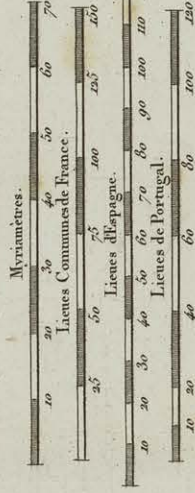 Myriamètres.
10 20 30 40 50 60 70
Lieues Communes de France.
25 50 75 100 125 150
Lieues d'Espagne.
10 20 30 40 50 60 70 80 90 100 110
Lieues de Portugal.
10 20 40 60 80 100 120